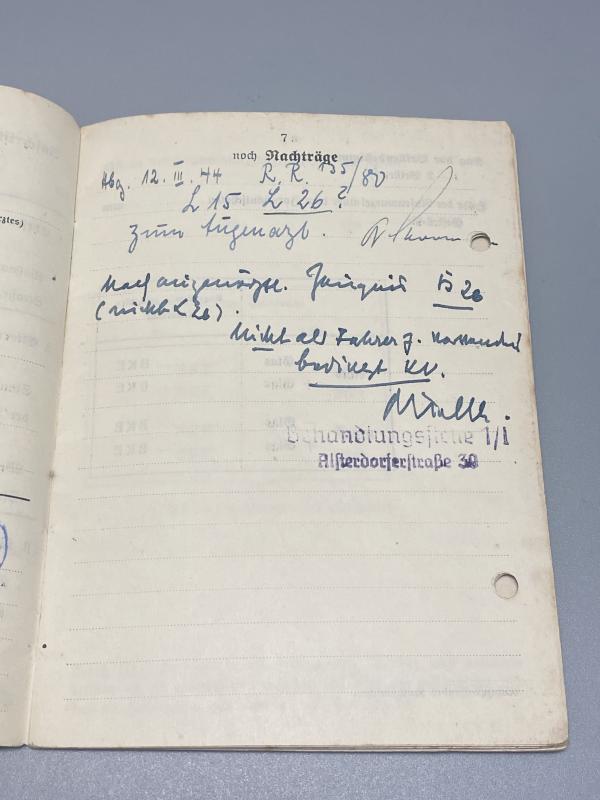 7
noch Nachträge
Abg. 12. III. 44 R. R. 135/80
L 15 L 26 ?
zum Augenarzt.
Nach augenärztl. Zeugnis B 26
(nicht L 26).
Nicht als Fahrer z.
bedingt kv.
Müller.
Behandlungsstelle 1/I
Alsterdorferstraße 30
BKE
BKE
BKE
BKE